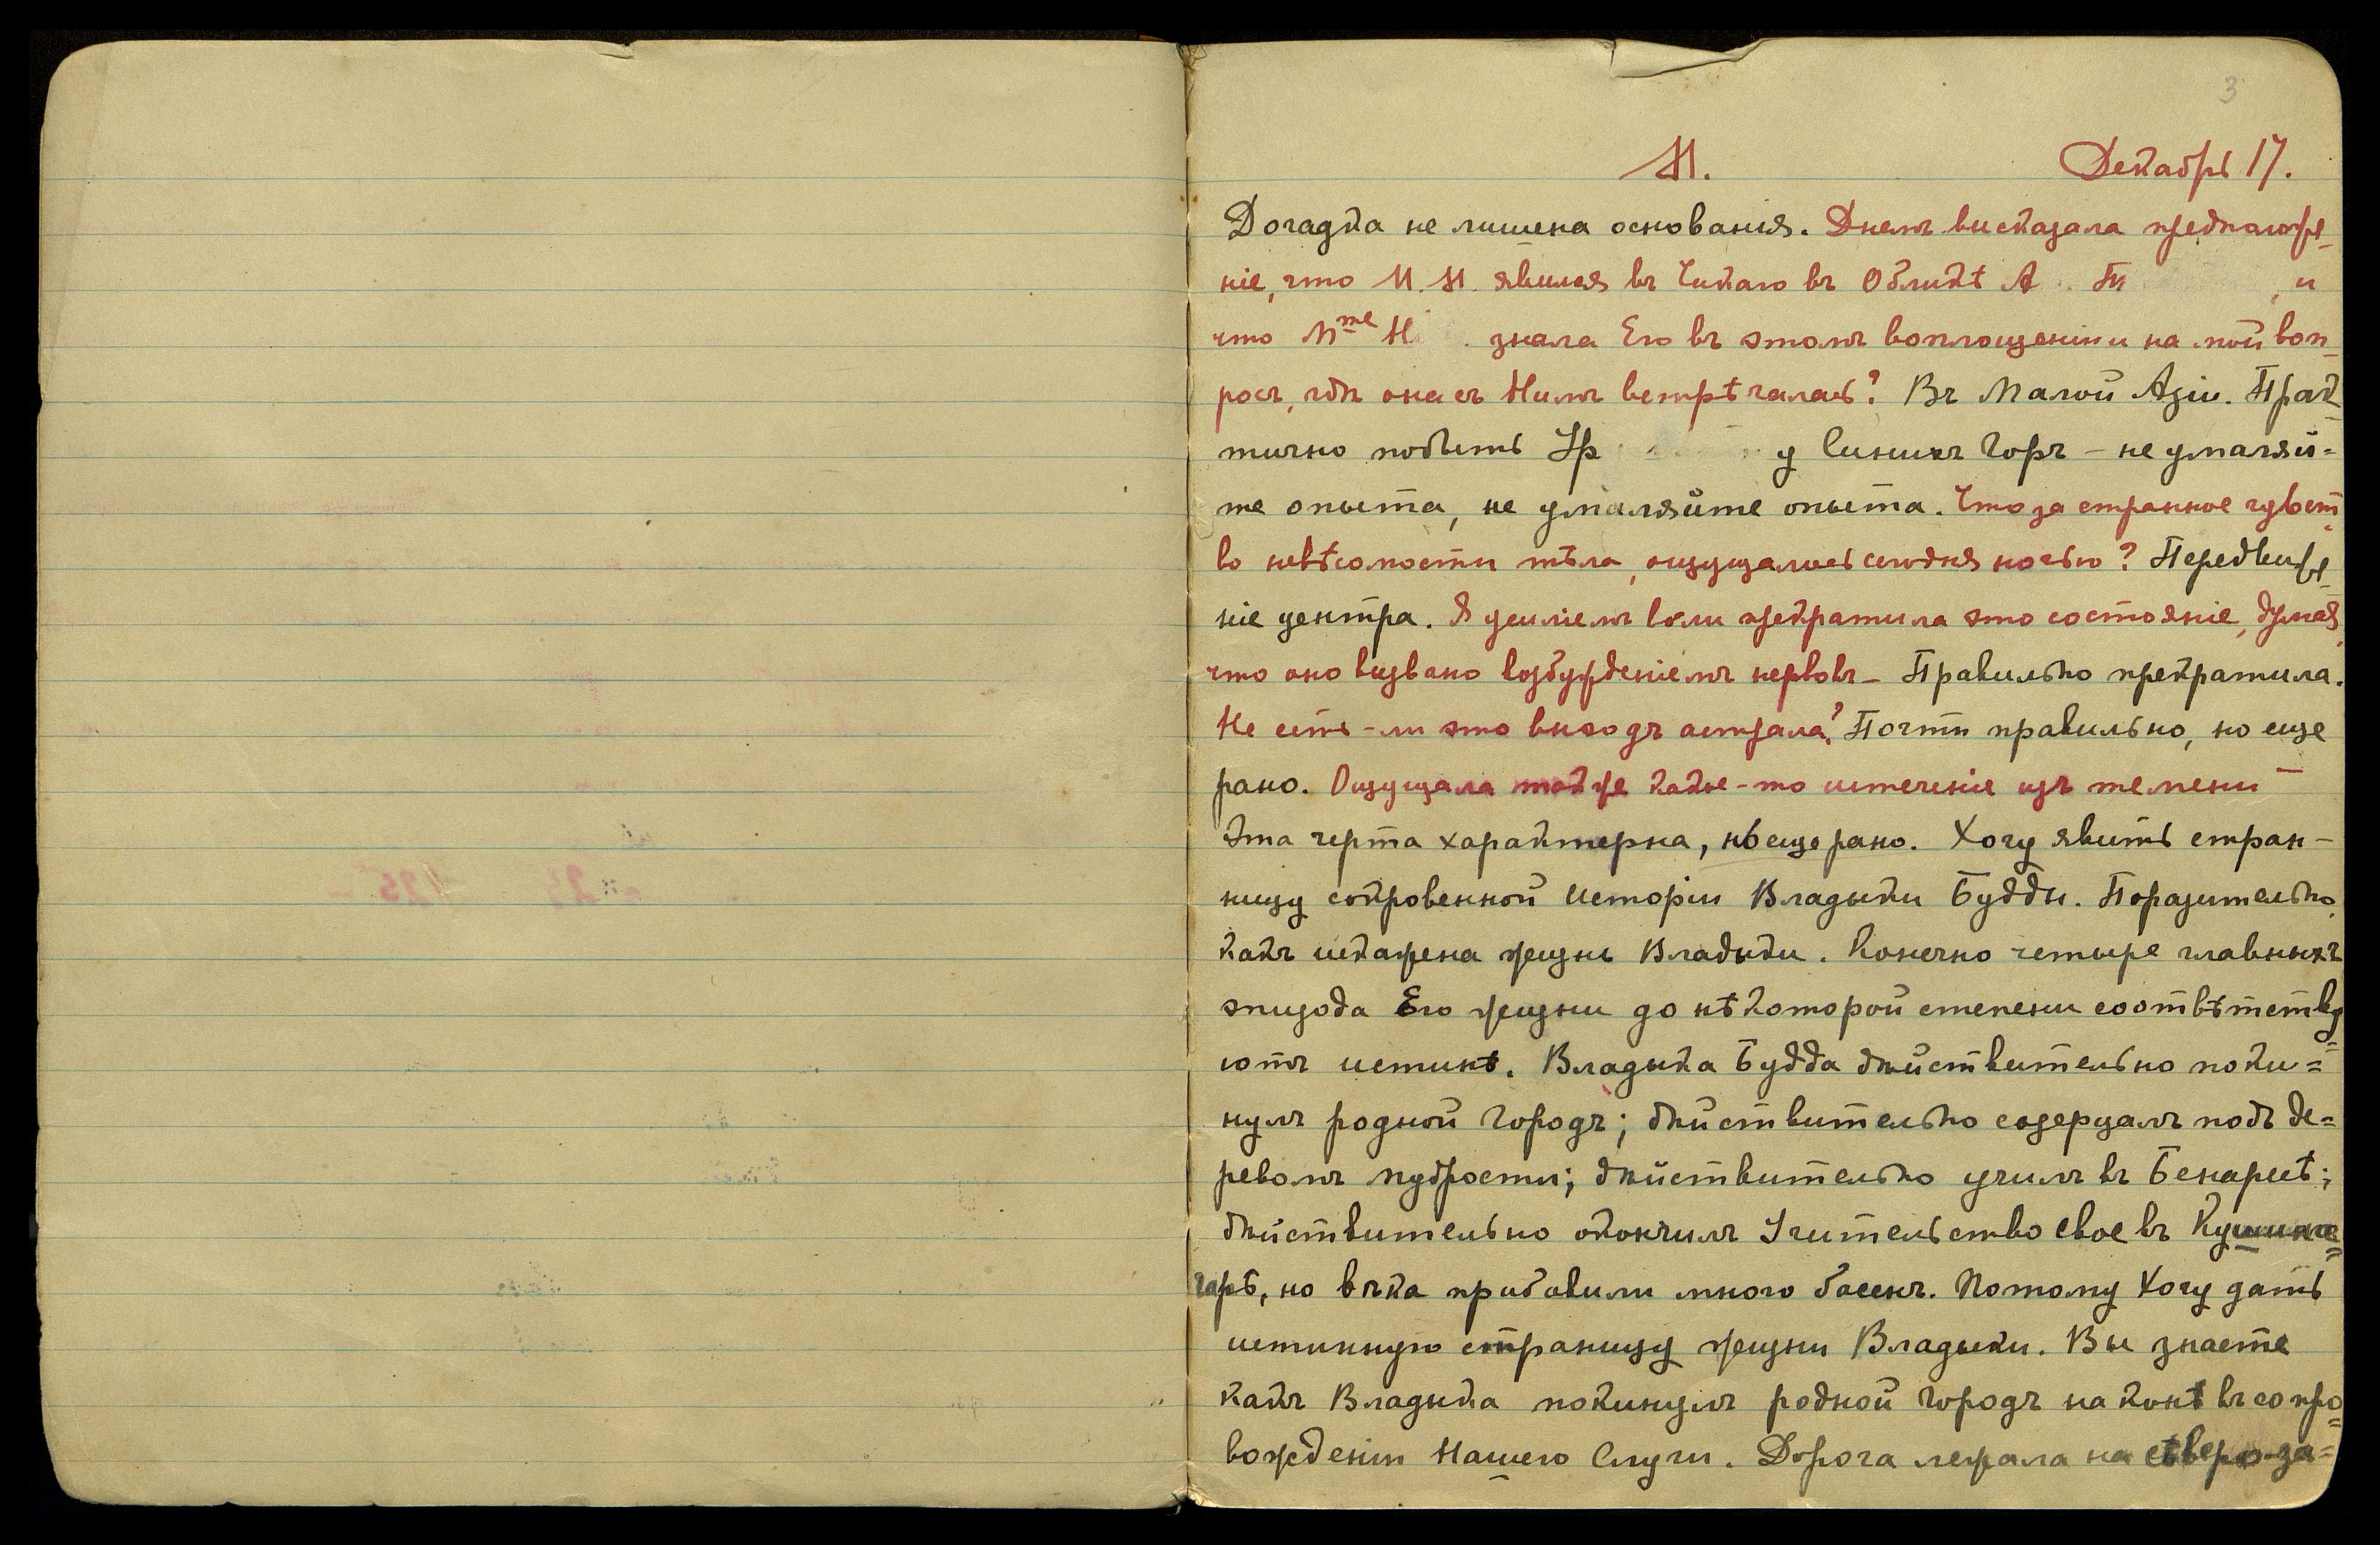 3
Н. Декабрь 17.
Догадка не лишена основанія. Днемъ высказала предположе-
ніе, что М. Н. явился въ Чикаго въ Обликѣ А Т , и
что Mme Н знала Его въ этомъ воплощеніи и на мой воп-
росъ, гдѣ она съ Нимъ встрѣчалась? Въ Малой Азіи. Прак-
тично побыть у Синихъ Горъ – не умаляй=
те опыта, не умаляйте опыта. Что за странное чувст-
во невѣсомости тѣла, ощущалось сегодня ночью? Передвиже-
ніе центра. Я усиліемъ воли прекратила это состояніе, думая,
что оно вызвано возбужденіемъ нервовъ – Правильно прекратила.
Не есть-ли это выходъ астрала? Почти правильно, но еще
рано. Ощущала также какое-то истеченіе изъ темени –
Эта черта характерна, но еще рано. Хочу явить стран-
ницу сокровенной Исторіи Владыки Будды. Поразительно,
какъ искажена жизнь Владыки. Конечно четыре главныхъ
эпизода Его жизни до нѣкоторой степени соотвѣтству=
ютъ истинѣ. Владыка Будда дѣйствительно поки=
нулъ родной Городъ; дѣйствительно созерцалъ подъ де=
ревомъ мудрости; дѣйствительно училъ въ Бенаресѣ;
дѣйствительно окончилъ Учительство свое въ Кушина=
гарѣ, но вѣка прибавили много басенъ. Потому Хочу дать
истинную страницу жизни Владыки. Вы знаете
какъ Владыка покинулъ родной Городъ на конѣ въ сопро=
вожденіи Нашего Слуги. Дорога лежала на сѣверо-за=